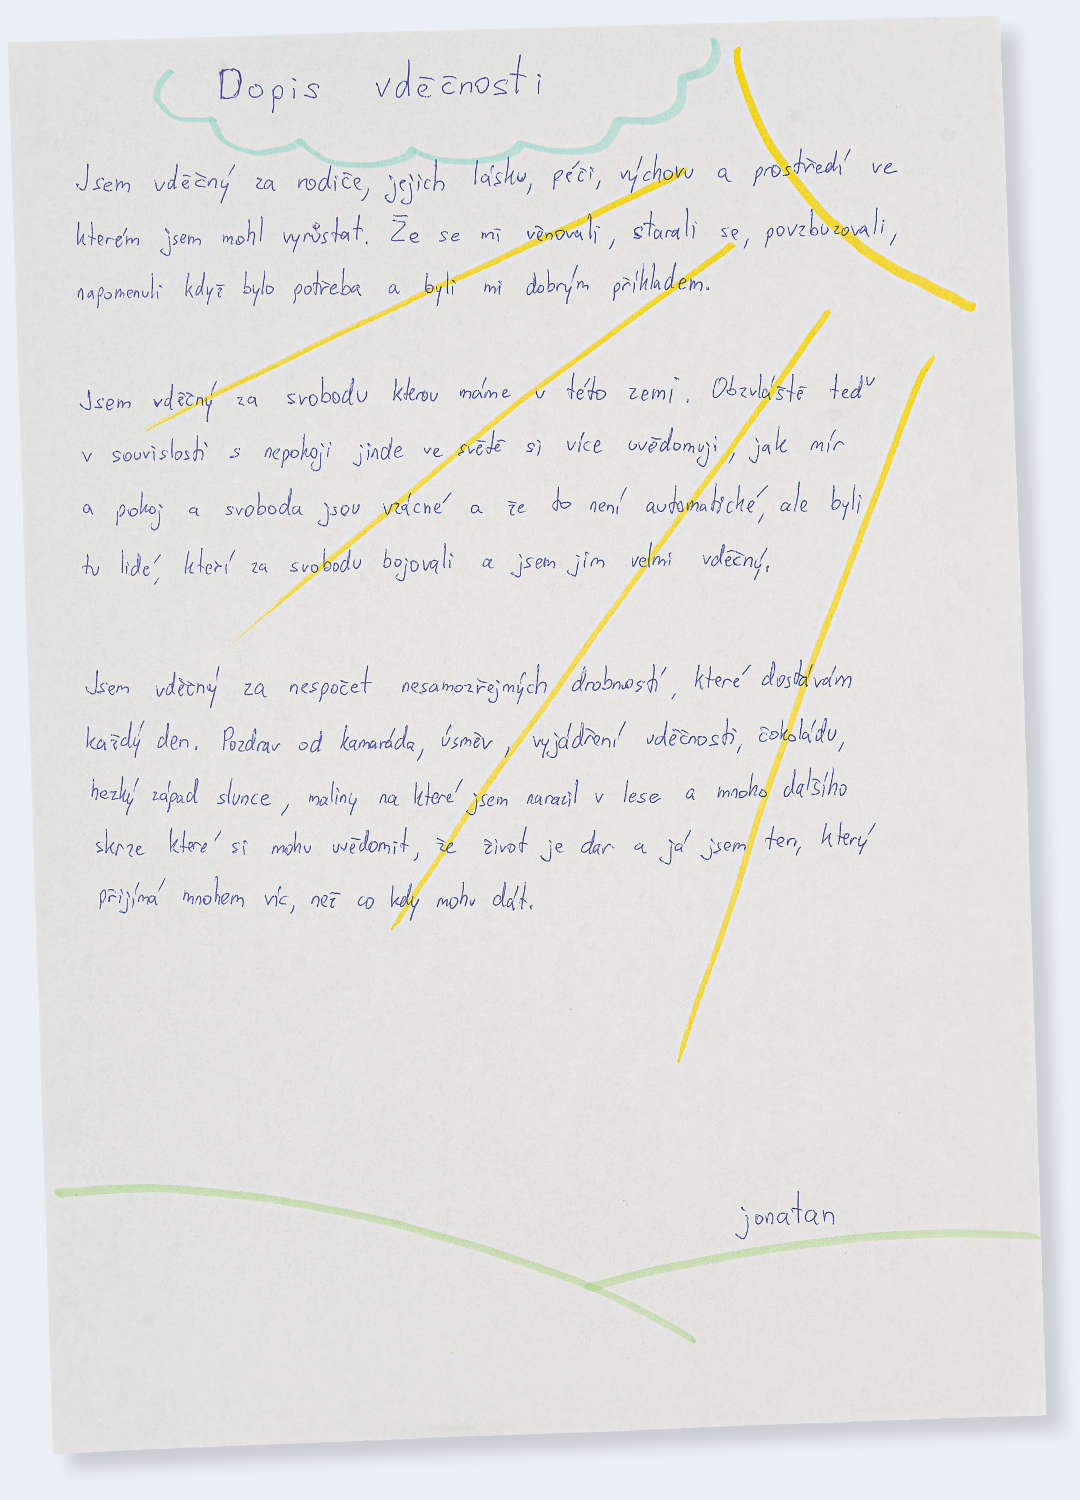 Dopis vděčnosti
Jsem vděčný za rodiče, jejich lásku, péči, výchovu a prostředí ve
kterém jsem mohl vyrůstat. Že se mi věnovali, starali se, povzbuzovali,
napomenuli když bylo potřeba a byli mi dobrým příkladem.
Jsem vděčný za svobodu kterou máme v této zemi. Obzvláště teď
v souvislosti s nepokoji jinde ve světě si více uvědomuji, jak mír
a pokoj a svoboda jsou vzácné a že to není automatické, ale byli
tu lidé, kteří za svobodu bojovali a jsem jim velmi vděčný.
Jsem vděčný za nespočet nesamozřejmých drobností, které dostávám
každý den. Pozdrav od kamaráda, úsměv, vyjádření vděčnosti, čokoládu,
hezký západ slunce, maliny na které jsem narazil v lese a mnoho dalšího
skrze které si mohu uvědomit, že život je dar a já jsem ten, který
přijímá mnohem víc, než co kdy mohu dát.
jonatan